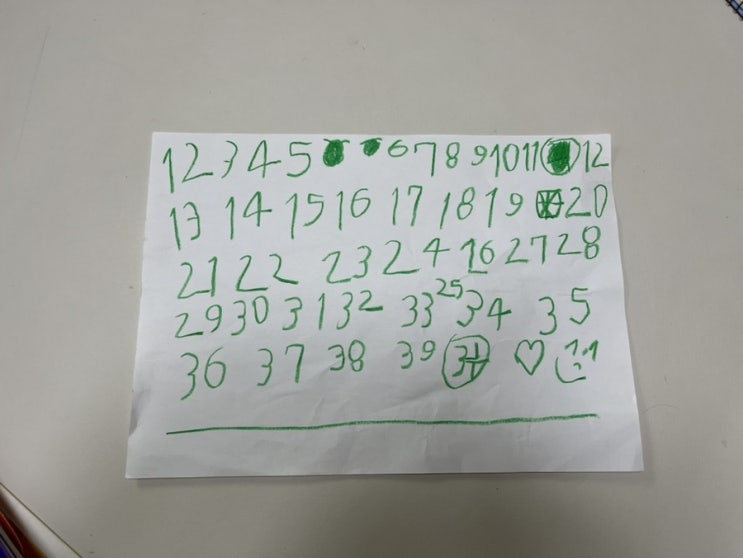 1 2 3 4 5 6 7 8 9 10 11 12
13 14 15 16 17 18 19 20
21 22 23 24 16 27 28
29 30 31 32 33 25 34 35
36 37 38 39